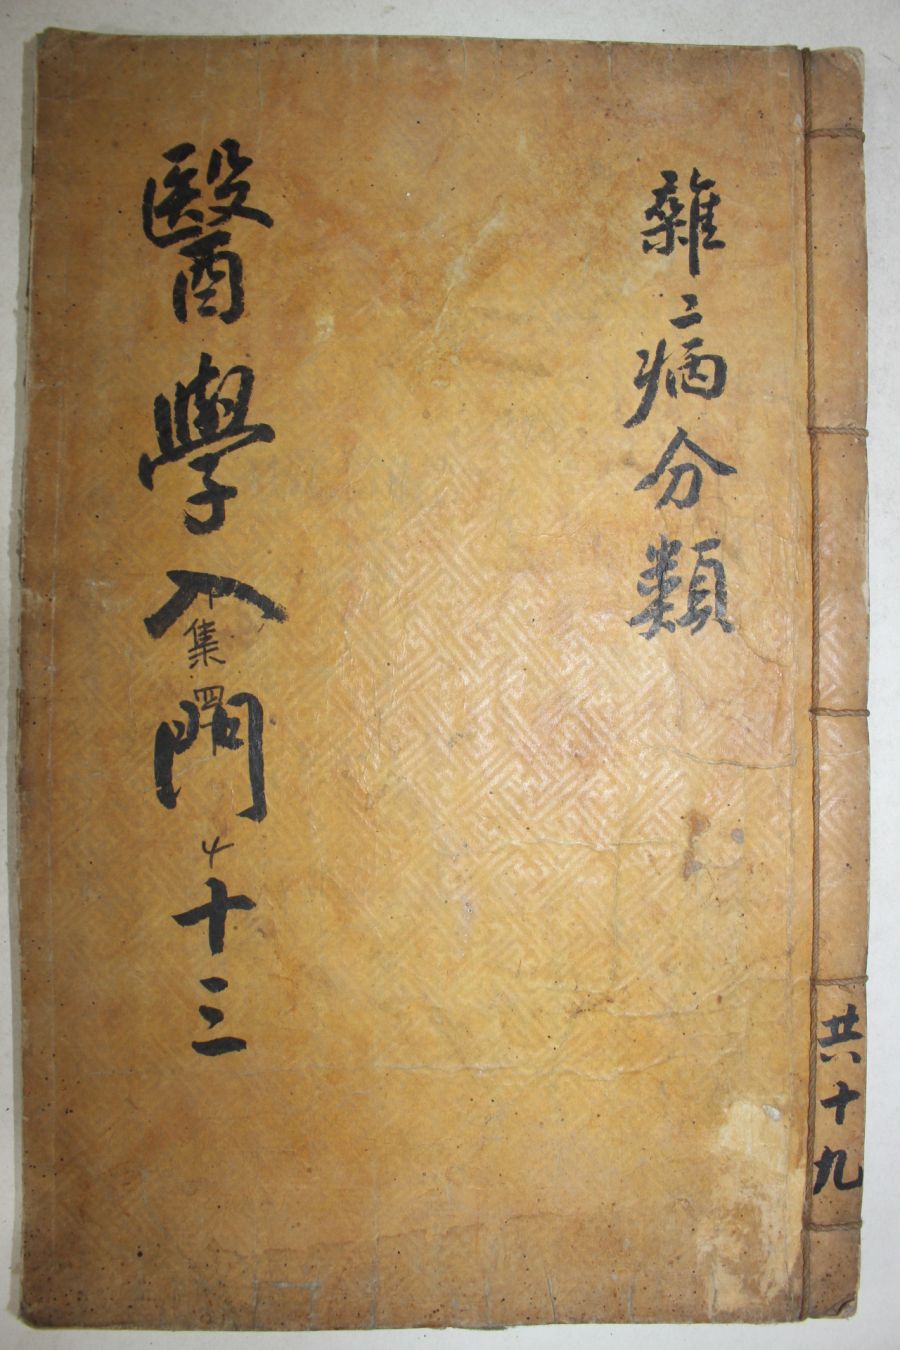 雜病分類
醫學入門 十三
集
共十九